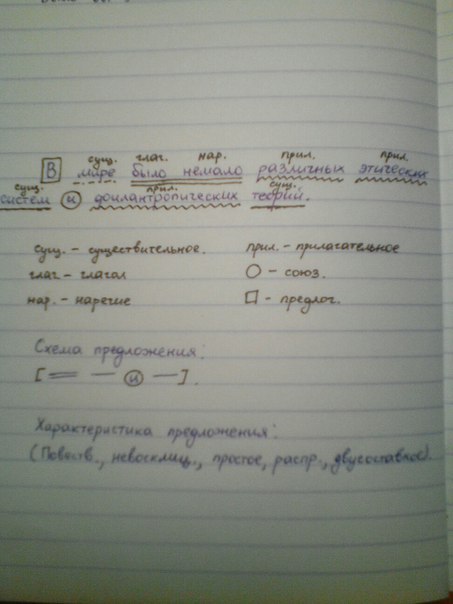 сущ. глаг. нар. прил. прил.
В мире было немало различных этических
сущ. прил. сущ.
систем и филантропических теорий.
сущ. – существительное. прил. – прилагательное
глаг – глагол – союз.
нар. – наречие – предлог.
Схема предложения:
[== — и —].
Характеристика предложения:
(Повеств., невосклиц., простое, распр., двусоставное).